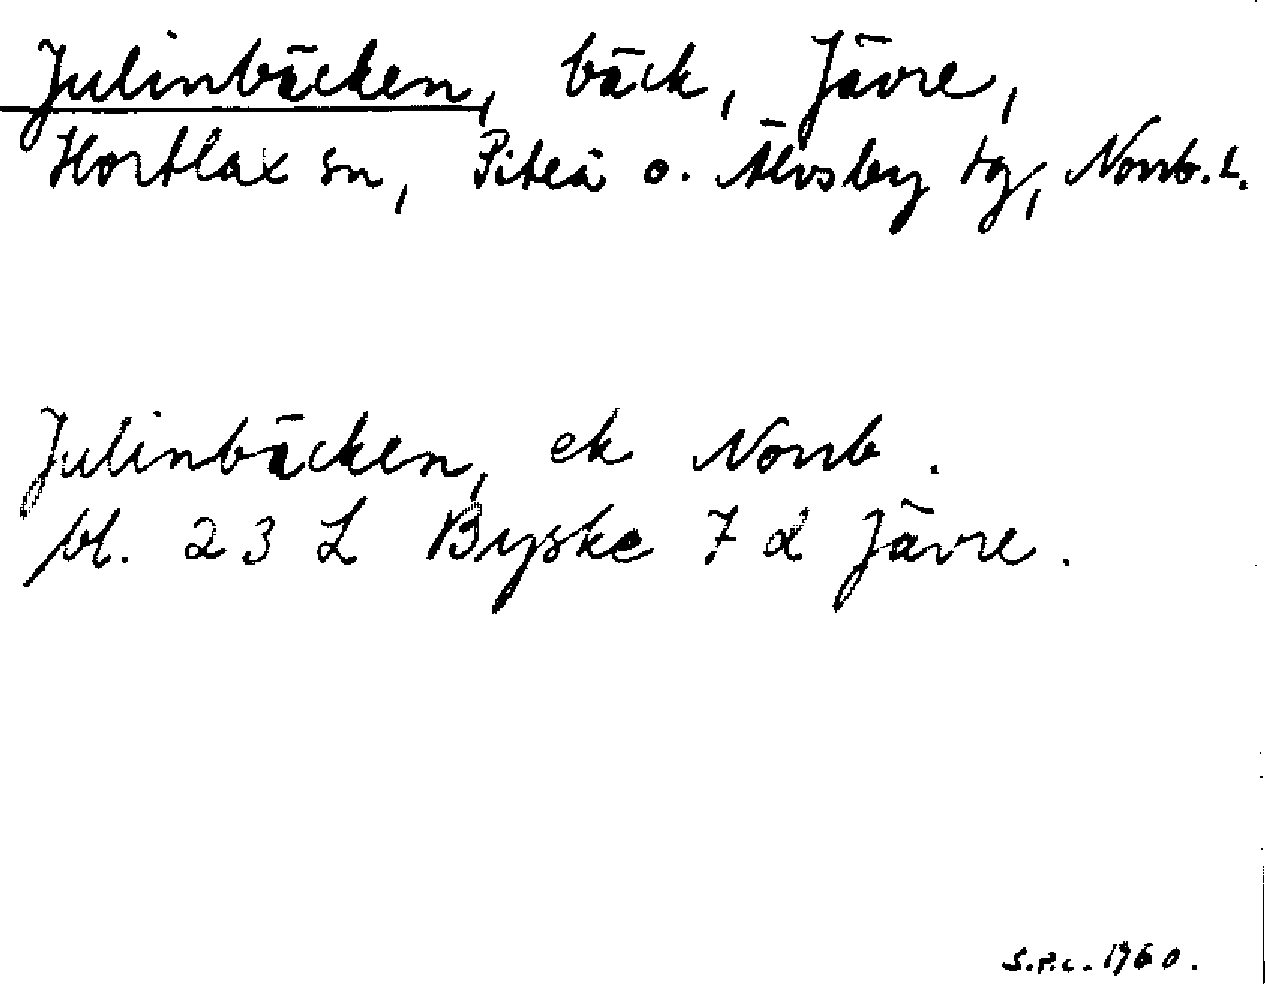 Julinbäcken, bäck, Jävre,
Hortlax sn, Piteå o. Älvsby tg, Norrb. L.
Julinbäcken, ek Norrb.
bl. 23 L Byske 7 d Jävre.
S.P.C. 1960.